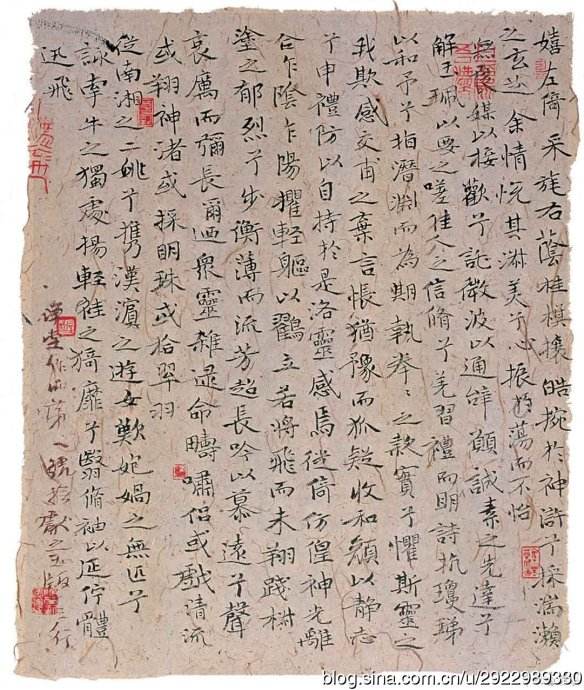 嬉左倚采旄右蔭桂旗攘皓捥於神滸兮採湍瀨
之玄芝余情悅其淑美兮心振蕩而不怡
無良媒以接歡兮託微波以通辭願誠素之先達兮
解玉珮以要之嗟佳人之信脩兮羌習禮而明詩抗瓊珶
以和予兮指潛淵而為期執拳〻之款實兮懼斯靈之
我欺感交甫之棄言悵猶豫而狐疑收和顏以靜志
兮申禮防以自持於是洛靈感焉徙倚仿偟神光離
合乍陰乍陽擢輕軀以鶴立若將飛而未翔踐椒
塗之郁烈兮步衡薄而流芳超長吟以慕遠兮聲
哀厲而彌長爾迺眾靈雜遝命疇嘯侶或戲清流
或翔神渚或採明珠或拾翠羽
從南湘之二姚兮攜漢濱之遊女歎妑媧之無匹兮
詠牽牛之獨處揚輕袿之猗靡兮翳脩袖以延佇體
迅飛
堂作第一號臨獻之玉版十三行
blog.sina.com.cn/u/2922989330